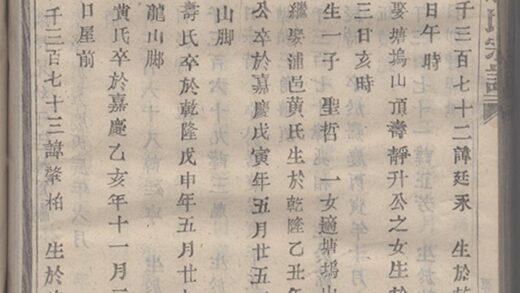 千三百七十二諱廷永 生於
日午時
娶塘塢山頂壽靜升公之女生於
三日亥時
生一子 聖哲 一女適塘塢山
繼娶浦邑黃氏生於乾隆乙丑年
公卒於嘉慶戊寅年五月廿五
山脚
壽氏卒於乾隆戊申年五月廿
龍山脚
黃氏卒於嘉慶乙亥年十一月
口屋前
千三百七十三諱肇柏 生於